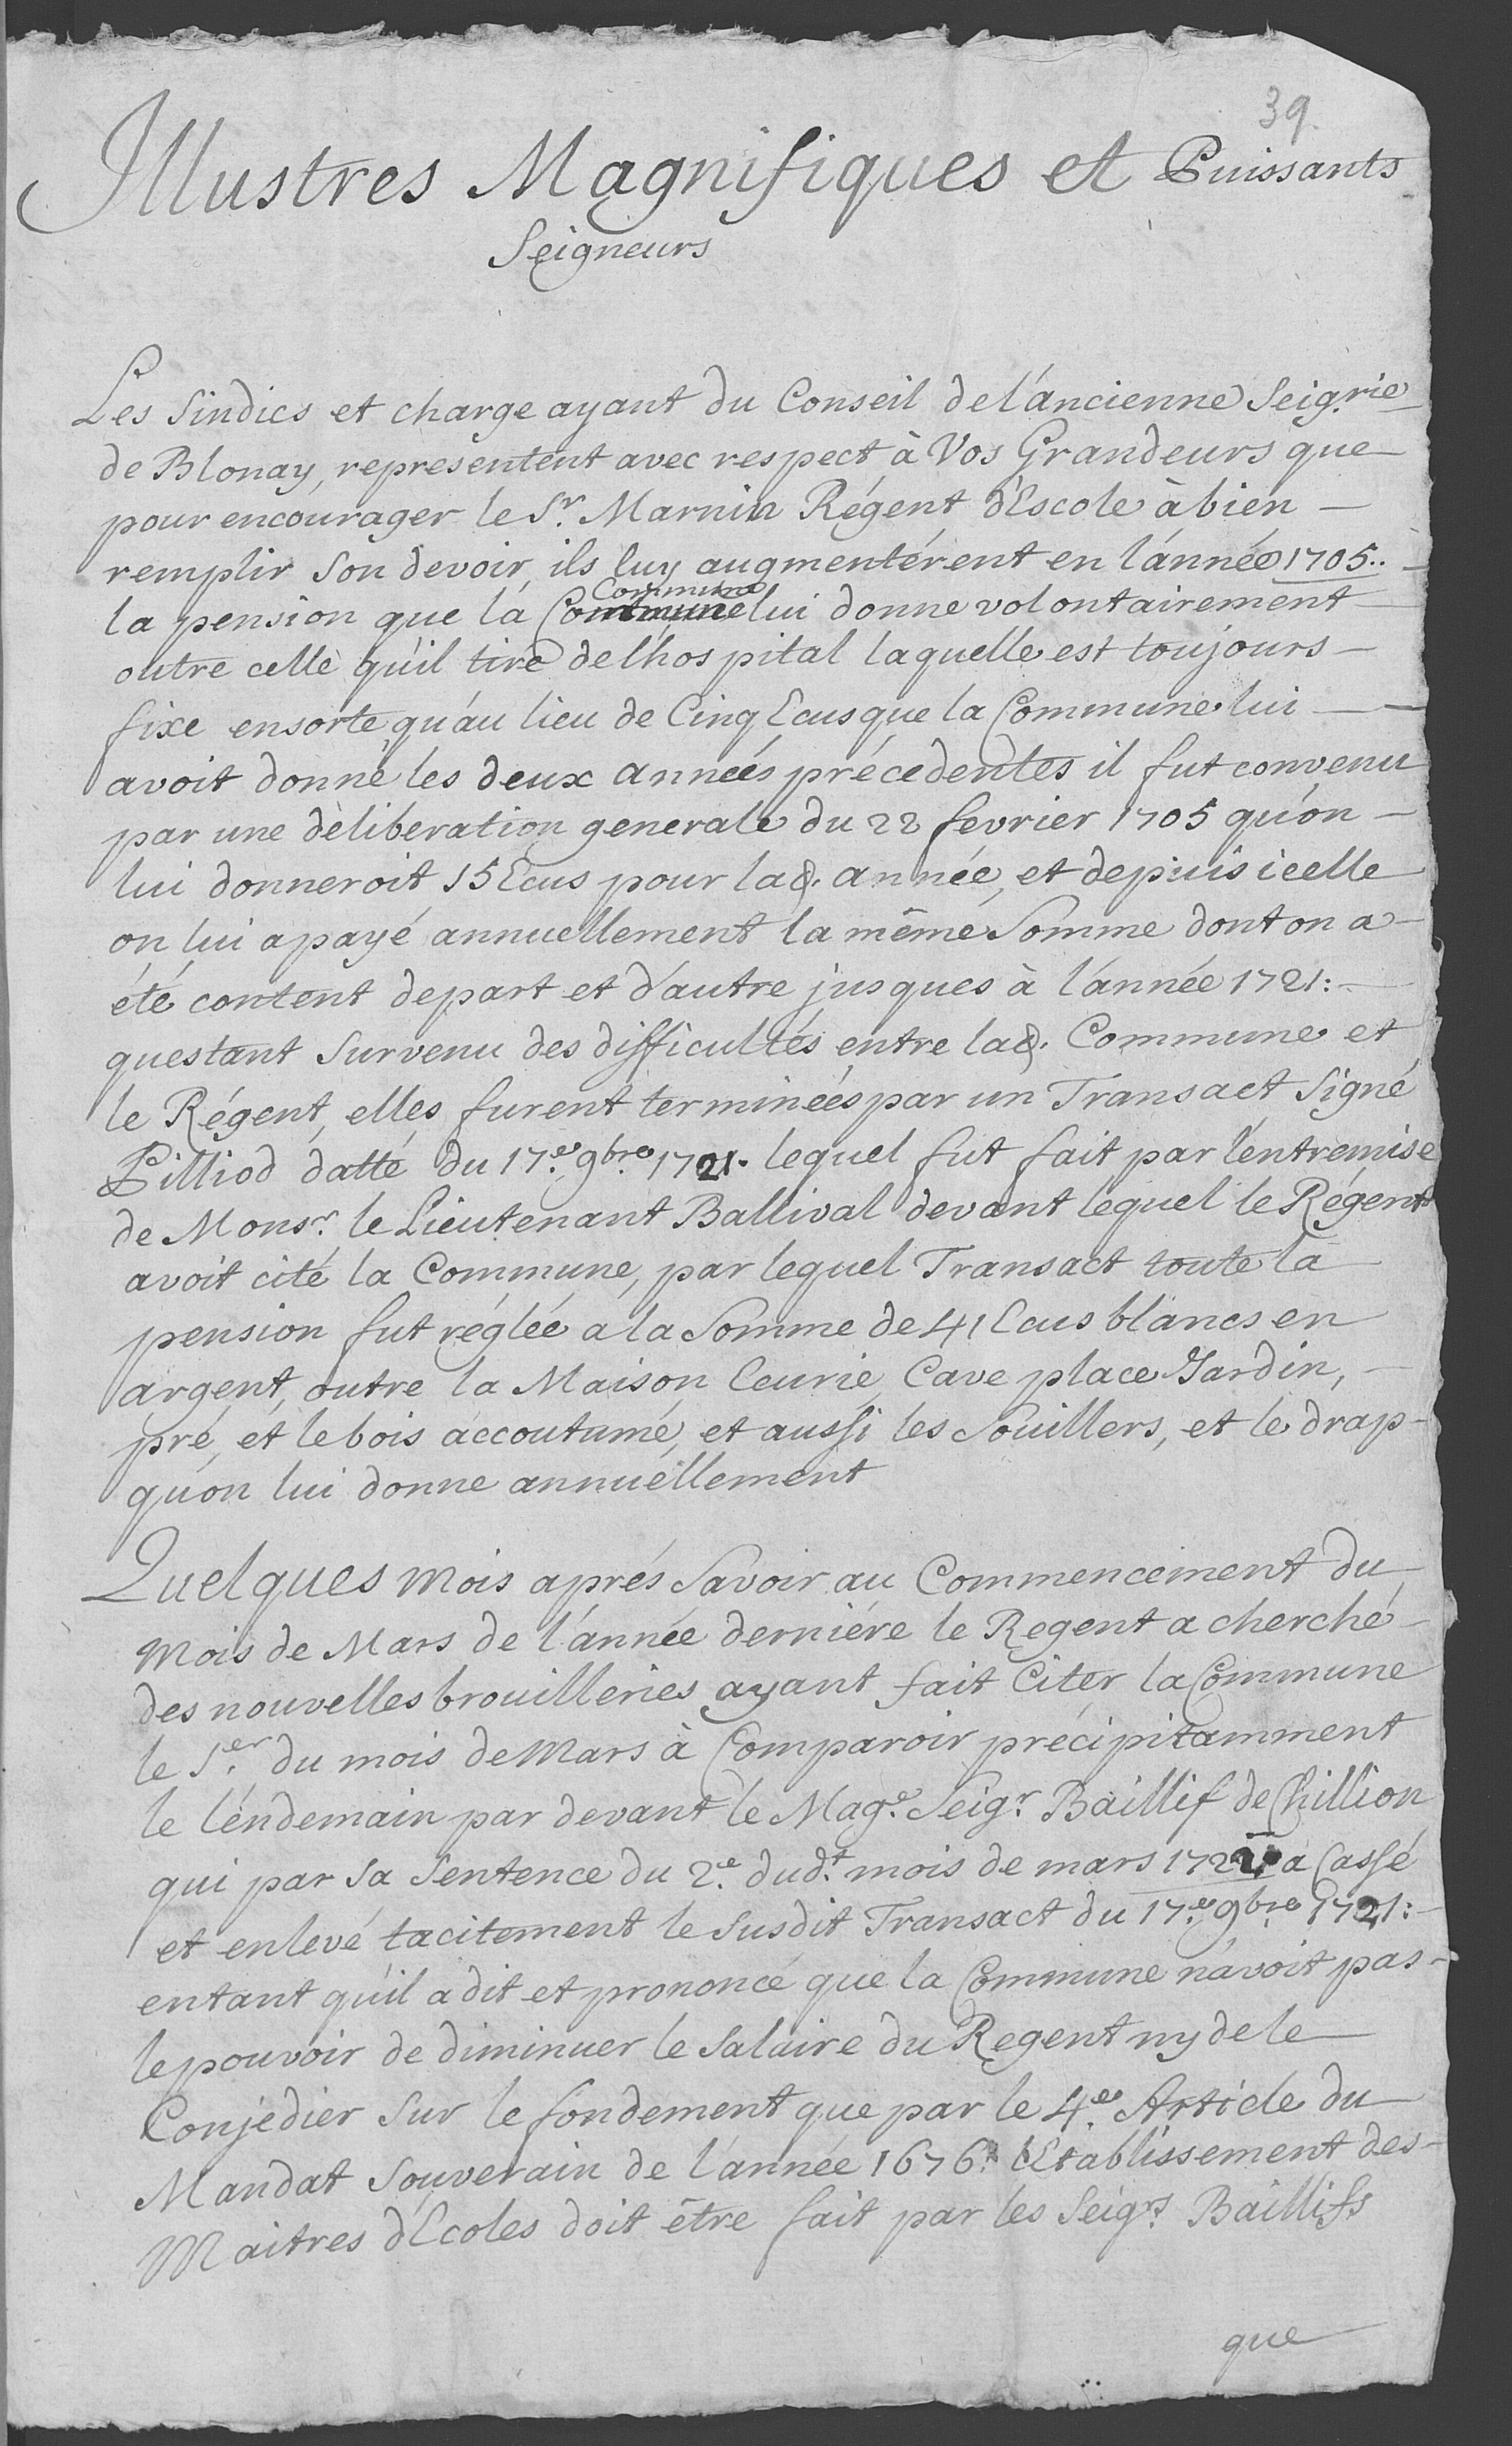 39.
Illustres Magnifiques et Puissants
Seigneurs
Les Sindics et charge ayant du Conseil de l'ancienne Seigrie
de Blonay, représentent avec respect à Vos Grandeurs que
pour encourager le Sr. Marnin Régent d'Escole à bien —
remplir Son devoir, ils luy augmentérent en l'année 1705.. —
la pension que la Commune lui donne volontairement
outre celle qu'il tire de lhospital laquelle est toujours —
fixe ensorte qu'au lieu de Cinq Ecus que la Commune lui —
avoit donné les deux années précedentes il fut convenu
par une déliberation generale du 22 fevrier 1705 qu'on —
lui donneroit 15 Ecus pour lad. année, et depuis icelle
on lui a payé annuellement la même Somme dont on a —
été content de part et d'autre jusques à l'année 1721: —
questant Survenu des difficultés entre lad. Commune et
le Régent, elles furent terminées par un Transact Signé
Pilliod datté du 17.e 9bre 1721. lequel fut fait par l'entremise
de Monsr. le Lieutenant Ballival devant lequel le Régent
avoit cité la Commune, par lequel Transact toute la
pension fut réglée a la Somme de 41 Ecus blancs en
argent, outre la Maison Ecurie, Cave place Jardin, —
pré, et le bois accoutumé, et aussi les Souillers, et le drap —
qu'on lui donne annuellement
Quelques mois aprés Savoir au Commencement du
mois de Mars de l'année derniére le Regent a cherché —
des nouvelles brouilleries ayant fait Citer la Commune
le 1.er du mois de Mars à Comparoir précipitamment
le lendemain par devant le Mag.e Seigr. Baillif de Chillion
qui par Sa Sentence du 2.e dudt. mois de mars 1722 a Cassé
et enlevé tacitement le Susdit Transact du 17.e 9bre 1721: —
entant qu'il a dit et prononcé que la Commune n'avoit pas —
le pouvoir de diminuer le Salaire du Regent ny de le —
Conjedier Sur le fondement que par le 4.e Article du
Mandat Souverain de l'année 1676. l'Etablissement des —
Maitres d'Ecoles doit être fait par les Seigrs. Baillifs
que